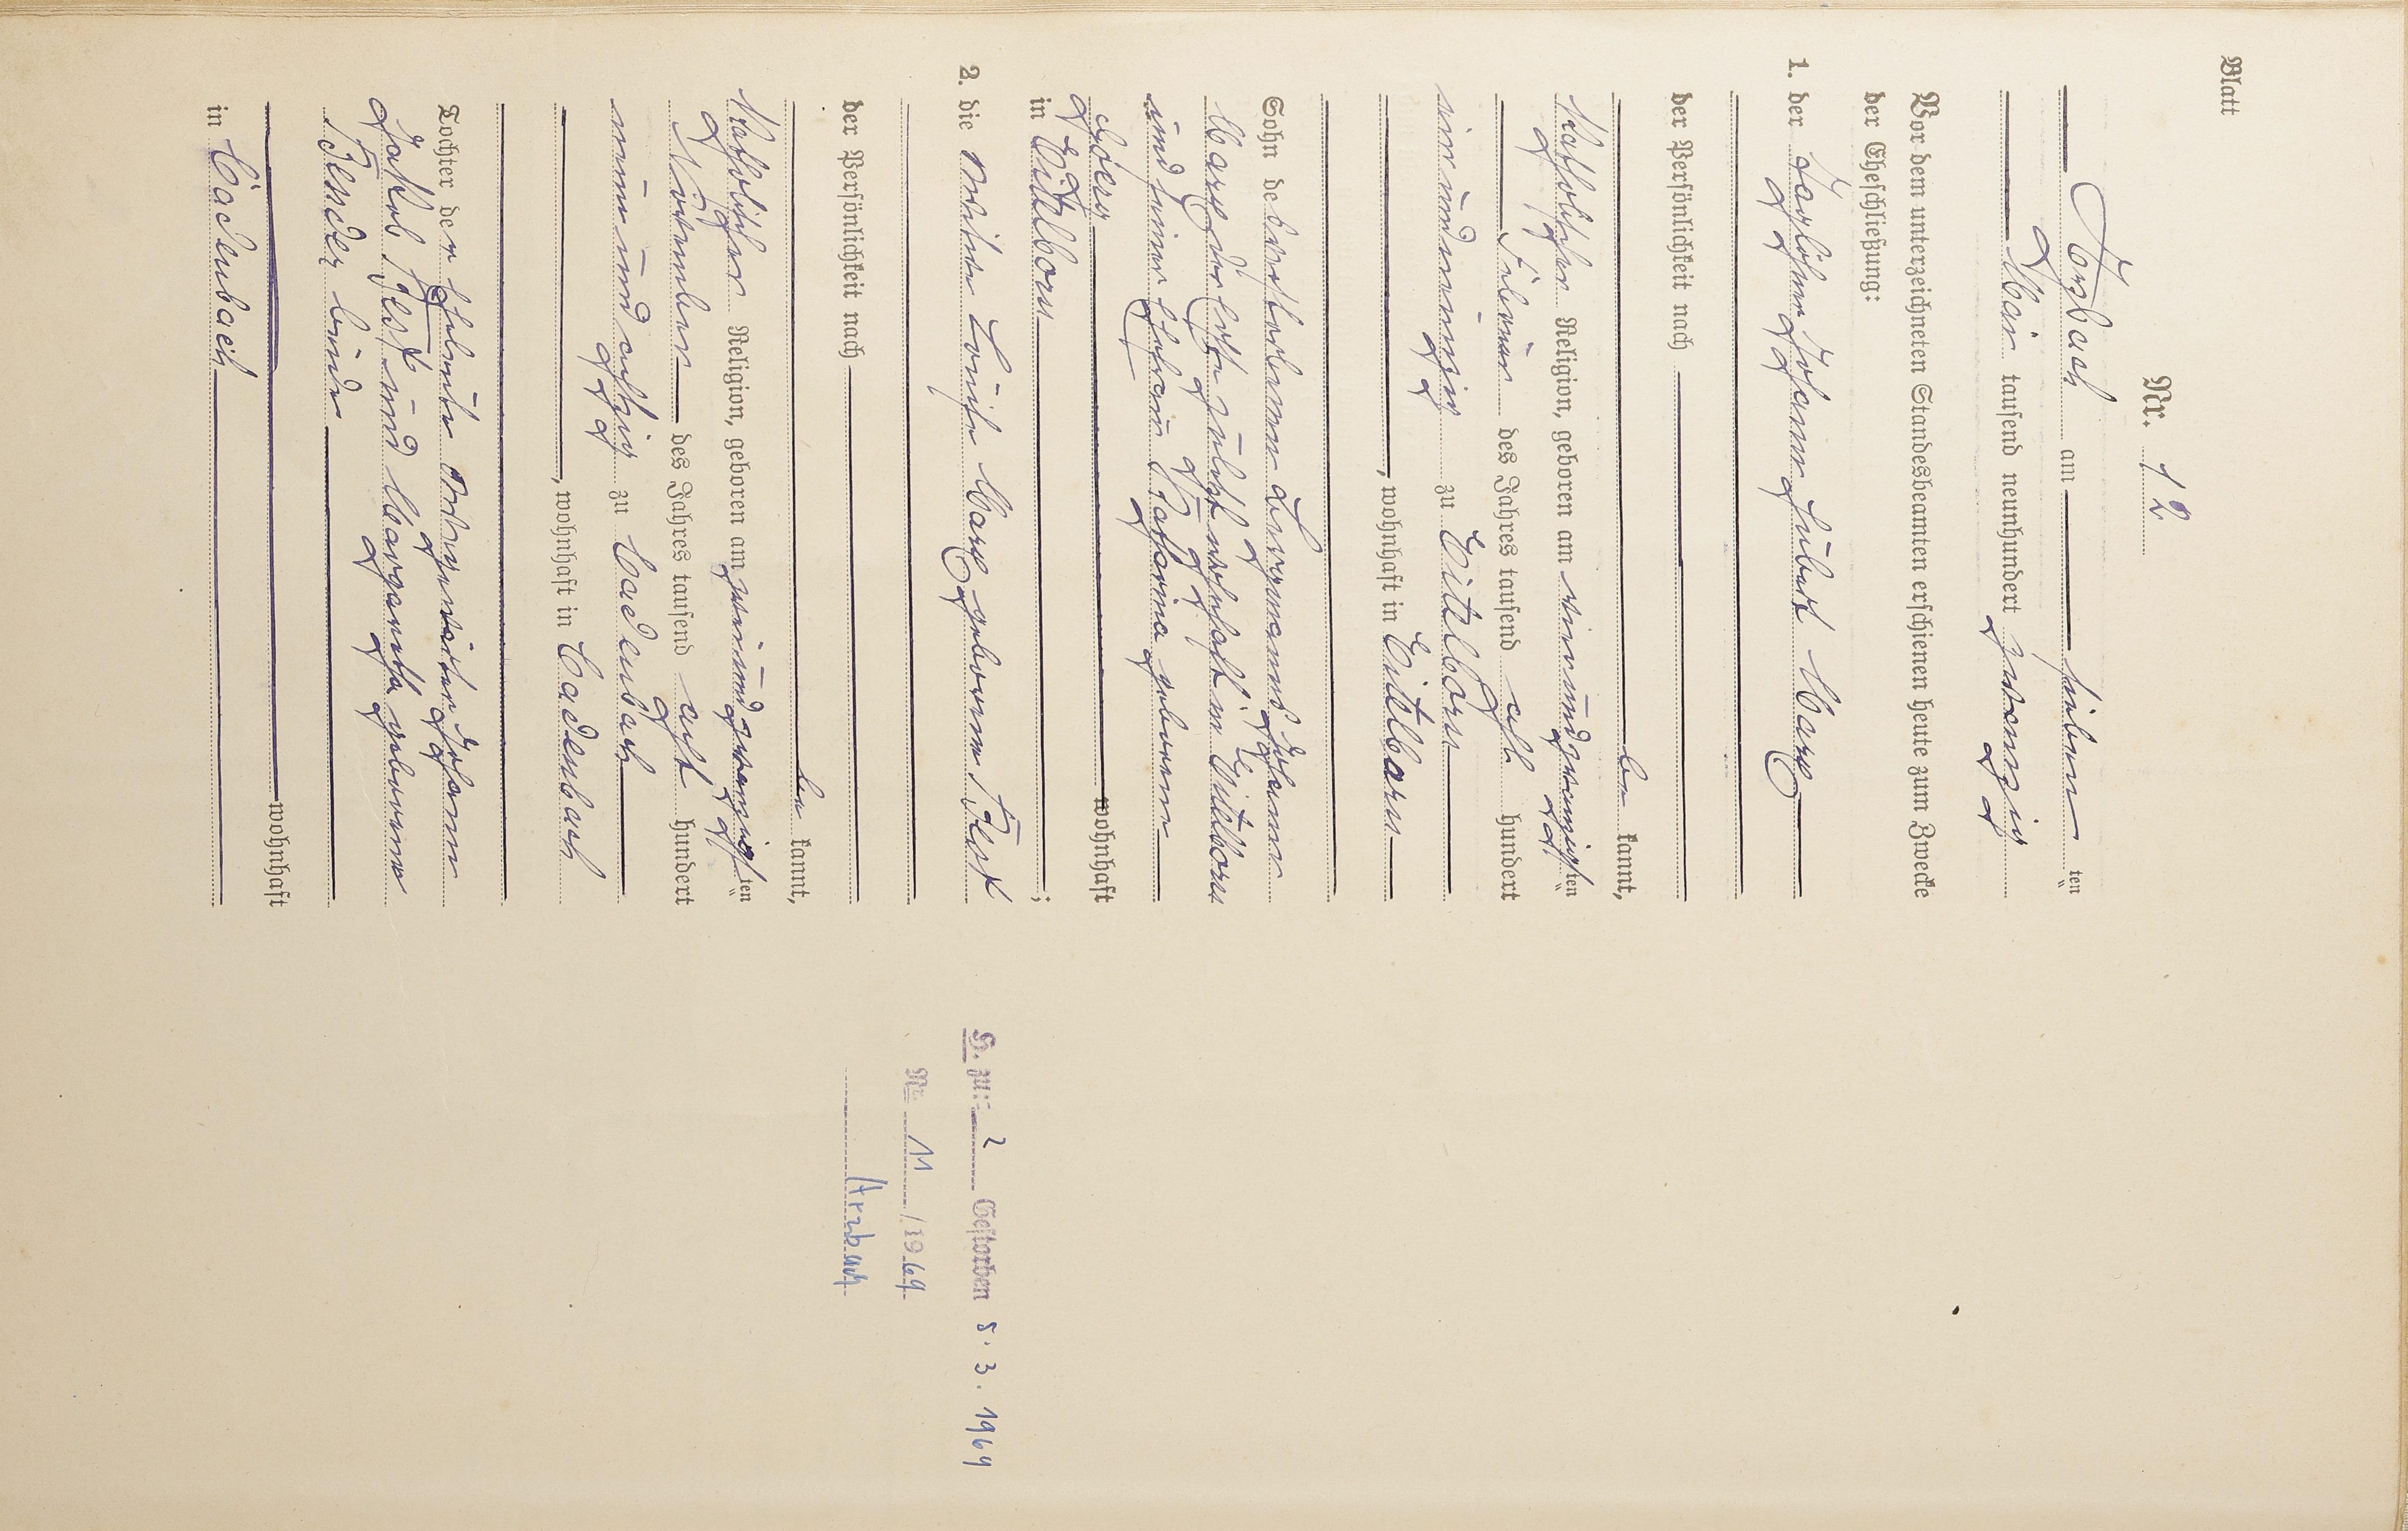 Blatt
Nr. 12
Arzbach am sieben ten
Mai tausend neunhundert zwanzig
Vor dem unterzeichneten Standesbeamten erschienen heute zum Zwecke
der Eheschließung:
1. der Taglöhner Johann Hubert Marx
der Persönlichkeit nach
be kannt,
katholischer Religion, geboren am vierundzwanzigsten
Februar des Jahres tausend acht hundert
einundneunzig zu Eitelborn
, wohnhaft in Eitelborn
Sohn des verstorbenen Bergmanns Johann
Marx der Erste zuletzt wohnhaft in Eitelborn
und seiner Ehefrau Katharina geborene
wohnhaft
in Eitelborn ;
2. die Witwe Louise Marx geborene
der Persönlichkeit nach
be kannt,
katholischer Religion, geboren am zweiundzwanzigsten
November des Jahres tausend acht hundert
neunundachtzig zu Cadenbach
, wohnhaft in Cadenbach
Tochter der Eheleute Johann
Jakob und Margaretha geborene
beide
wohnhaft
in Cadenbach
H. zu: 2 Gestorben 5. 3. 1969
Nr. 11 /1969
Arzbach